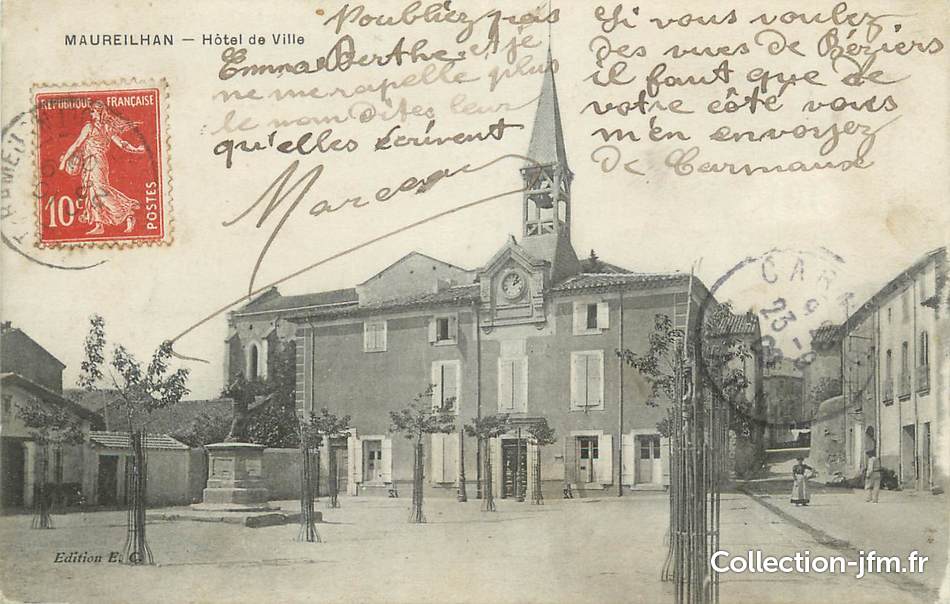 MAUREILHAN — Hôtel de Ville
Poubliez pas
Emma Berthe et je
ne me rapelle plus
le nom dites leur
qu'elles écrivent
Marceau
Si vous voulez
des vues de Béziers
il faut que de
votre côté vous
m'en envoyez
de Carmaux
REPUBLIQUE FRANÇAISE
10c
POSTES
CAR
23
Edition E. C.
Collection-jfm.fr